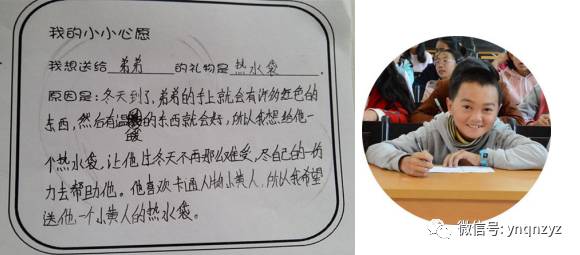 我的小小心愿
我想送给 弟弟 的礼物是 热水袋 .
原因是:冬天到了,弟弟的手上就会有许多红色的
东西,然后有温暖的东西就会好,所以我想给他一
个热水袋,让他过冬天不再那么难受,尽自己的一份
力去帮助他。他喜欢卡通人物小黄人,所以我希望
送他一个小黄人的热水袋。
微信号: ynqnzyz